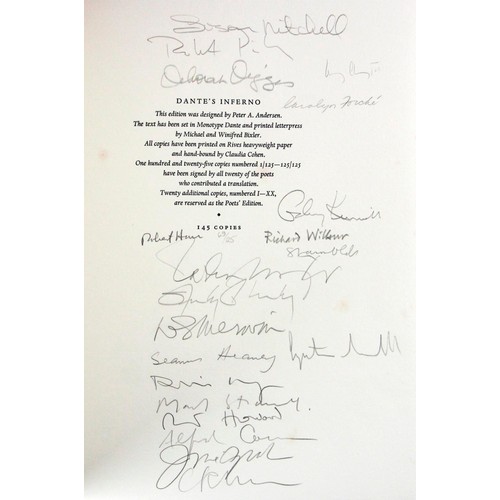 Susan Mitchell
Deborah Digges
Carolyn Forché
DANTE'S INFERNO
This edition was designed by Peter A. Andersen.
The text has been set in Monotype Dante and printed letterpress
by Michael and Winifred Bixler.
All copies have been printed on Rives heavyweight paper
and hand-bound by Claudia Cohen.
One hundred and twenty-five copies numbered 1/125—125/125
have been signed by all twenty of the poets
who contributed a translation.
Twenty additional copies, numbered I—XX,
are reserved as the Poets' Edition.
145 COPIES
Galway Kinnell
Robert Hass
Richard Wilbur
Sharon Olds
W S Merwin
Seamus Heaney
Mark Strand
Howard
Alfred Corn
Jorie Graham